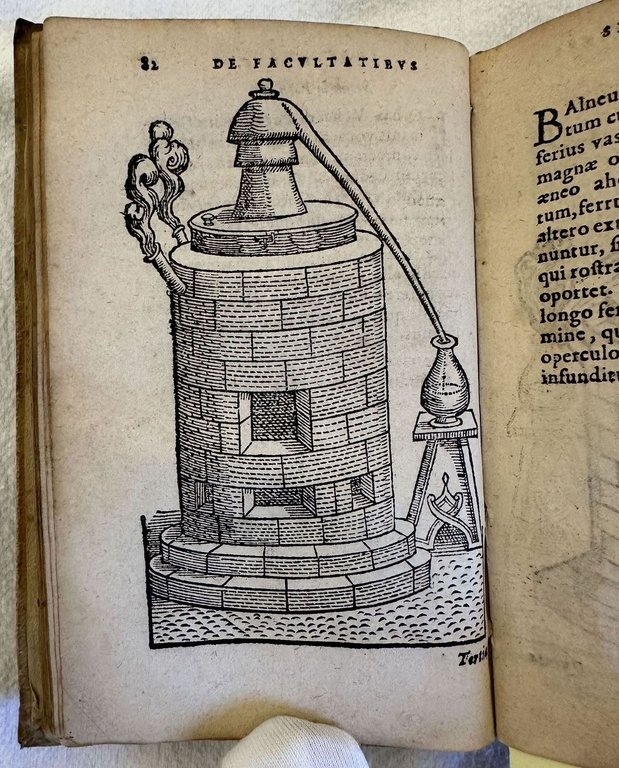 82 DE FACVLTATIBVS
BAlneu
tum cu
ferius vas
magnæ o
æneo ahe
tum, ferru
altero ext
nuntur, si
qui rostra
oportet.
longo fer
mine, qu
operculo
infunditu